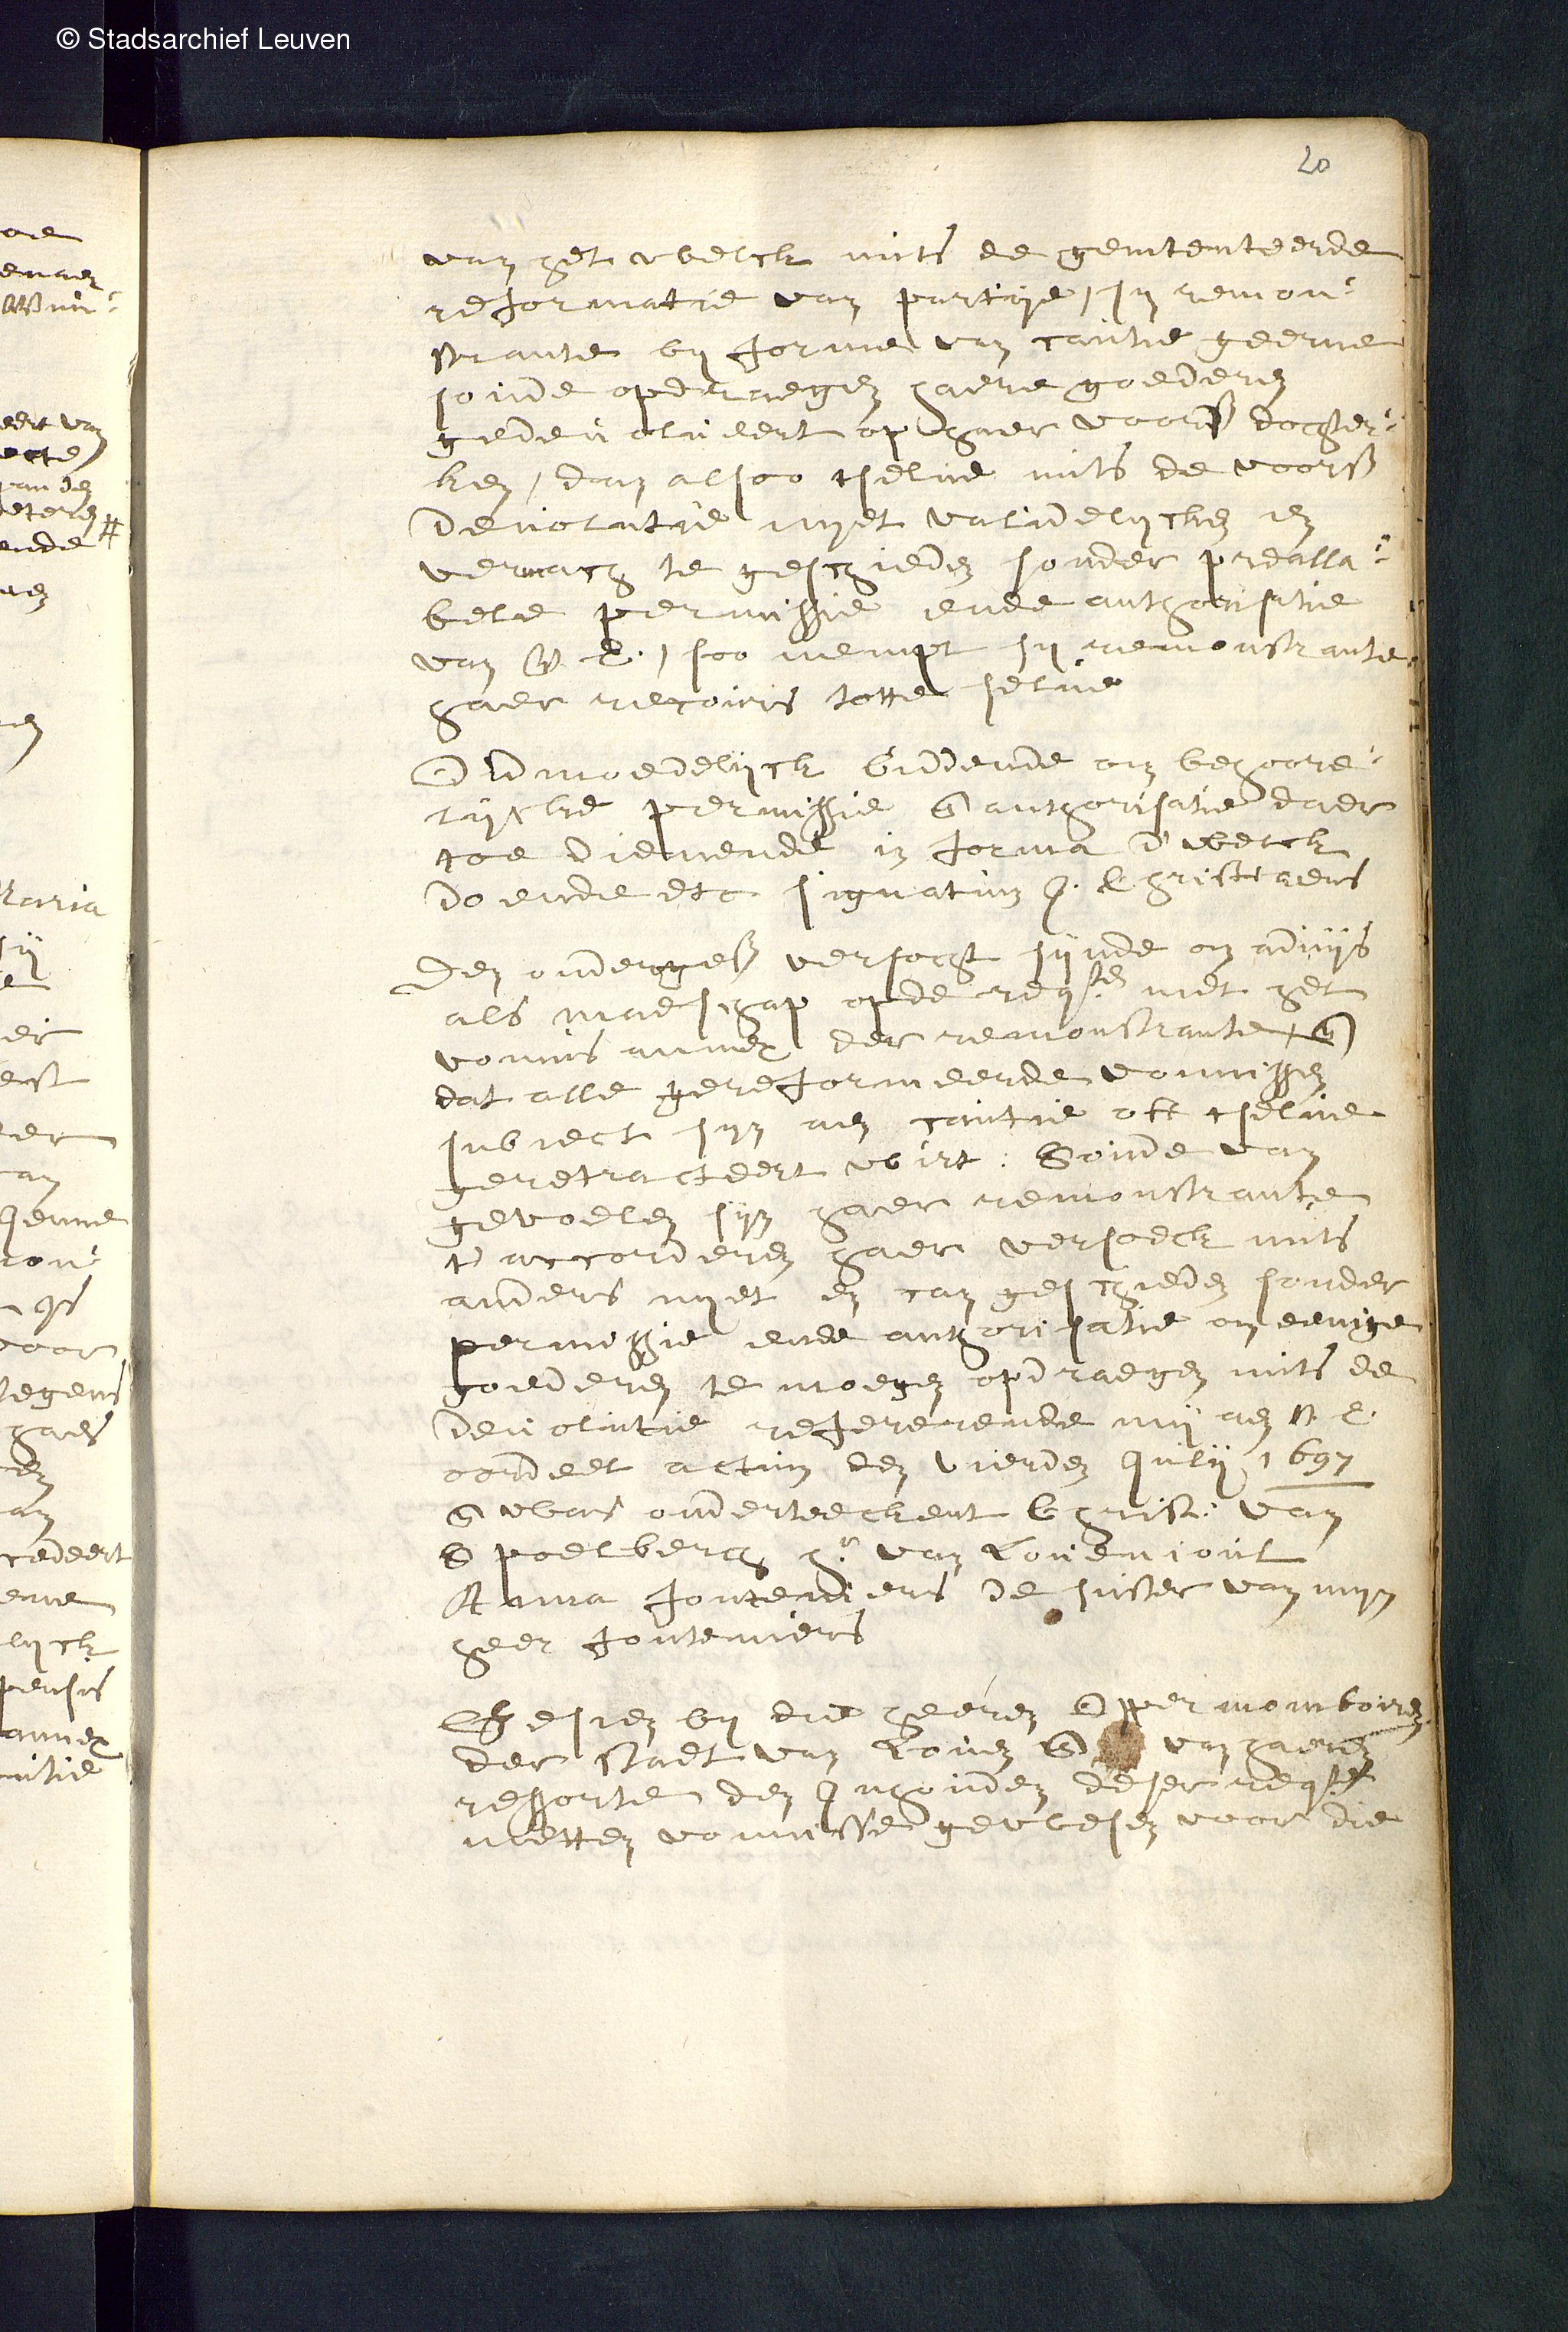 © Stadsarchief Leuven
20
van het welck mits de geintenteerde
reformatie van partije, sy remon:
strante by forme van cautie geerne
soude opdraegen haere goederen
gedevolveert op haer voors dochter:
ken, dan alsoo tselve mits de voors
devolutie nyet validelycken en
vermach te geschieden sonder prealla:
bele permissie ende authorisatie
van V. E., soo nempt sy remonstrante
haer recours totte selve
Oidmoedelyck biddende om behoore:
lycke permissie & authorisatie daer
toe dienende in forma d'welck
doende etc signatum J. Christiaens
Den onderges versocht synde om advys
als maeschap opde reqste met het
vonnis annex der remonstrante, &
dat alle gereformeerde vonnissen
subiect syn aen cautie oft tselve
geretracteert wirt: Soude van
gevoelen syn haer remonstrante
t'accorderen haer versoeck mits
anders nyet en can geschieden sonder
permissie ende authorisatie om eenige
goederen te moegen opdraegen mits de
devolutie refererende my aen V. E.
oordeel actum den vierden July 1697
& was onderteeckent Christ: van
Spoelberch hr van Lovenjoul
Anna Fonteniers de suster van myn
heer Fonteniers
Gesien by die heeren Oppermomboiren
der stadt van Loven & van haeren
ressorte den Inhouden deser reqste
metten vonnisse gewesen voor die